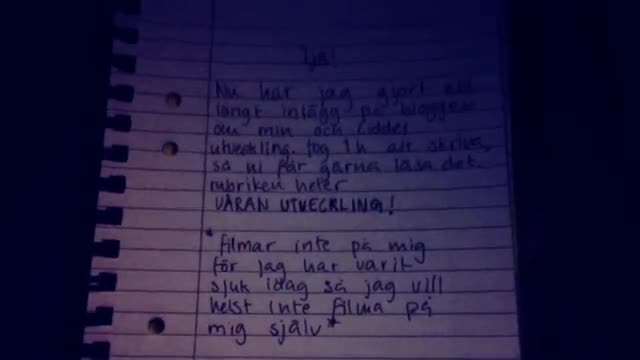 Nu har jag gjort ett
långt inlägg på bloggen
om min och
utveckling. Tog 1h att skriva,
så ni får gärna läsa det.
rubriken heter
VÅRAN UTVECKLING!
*filmar inte på mig
för jag har varit
sjuk idag så jag vill
helst inte filma på
mig själv*